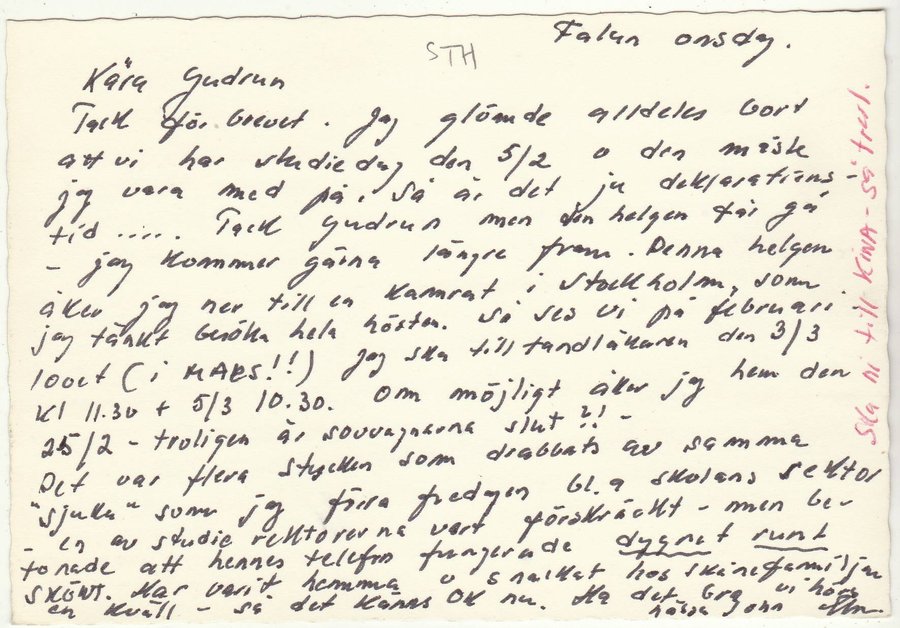 Falun onsdag.
STH
Kära Gudrun
Tack för brevet. Jag glömde alldeles bort
att vi har studiedag den 5/2 o den måste
jag vara med på. Så är det ju deklarations-
tid ..... Tack Gudrun men den helgen får gå
- jag kommer gärna längre fram. Denna helgen
åker jag ner till en kamrat i Stockholm, som
jag tänkt besöka hela hösten. Så ses vi på februari
lovet (i MARS!!) Jag ska till tandläkaren den 3/3
Kl 11.30 + 5/3 10.30. Om möjligt åker jag hem den
25/2 - troligen är sovvagnarna slut?! -
Det var flera stycken som drabbats av samma
"sjuka" som jag förra fredagen bl.a skolans sektor
- en av studierektorerna vart förskräckt - men be-
tonade att hennes telefon fungerade dygnet runt
SKÖNT. Har varit hemma o snackat hos skånefamiljen
en kväll - så det känns OK nu. Ha det bra vi hörs
hälsa John
Ska ni till KINA - så trevl.